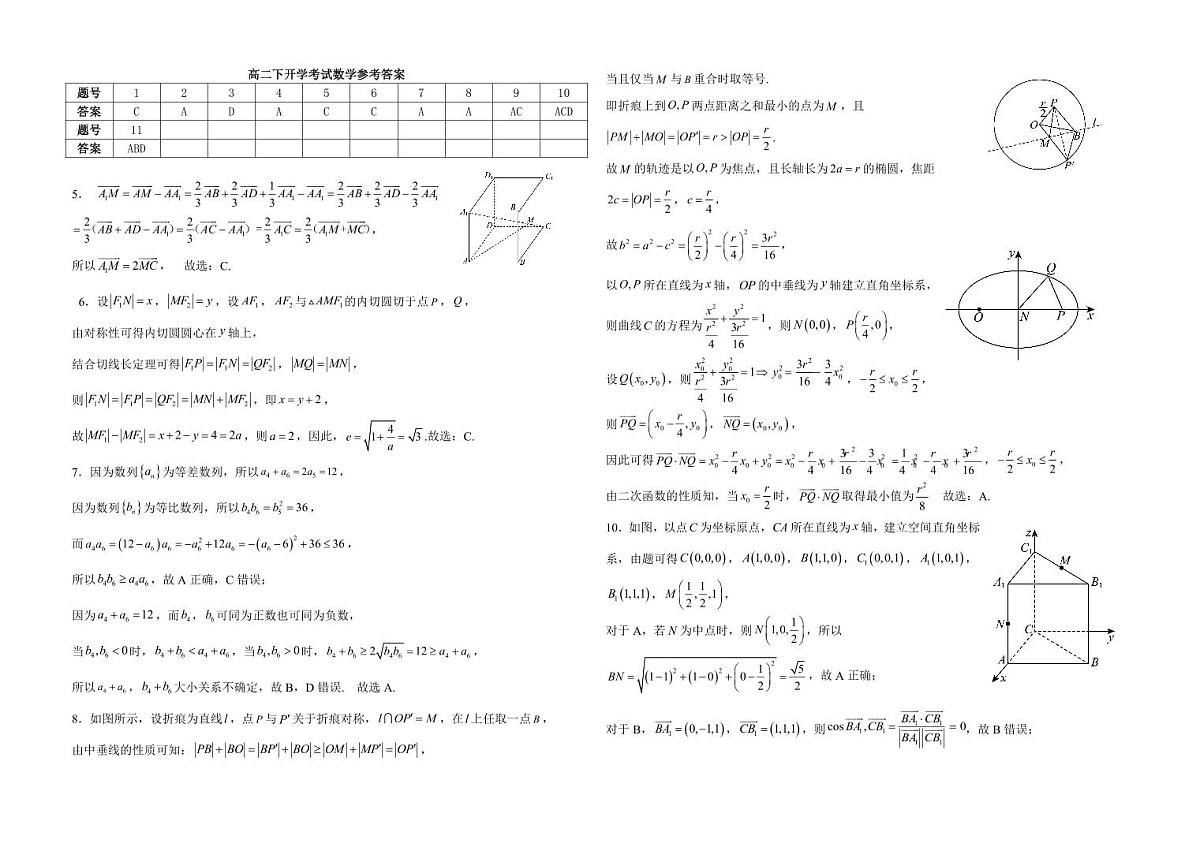 高二下开学考试数学参考答案
题号 1 2 3 4 5 6 7 8 9 10
答案 C A D A C C A A AC ACD
题号 11
答案 ABD
5． A₁M = AM − AA₁ = 2/3 AB + 2/3 AD + 1/3 AA₁ − AA₁ = 2/3 AB + 2/3 AD − 2/3 AA₁
= 2/3 (AB + AD − AA₁) = 2/3 (AC − AA₁) = 2/3 A₁C = 2/3 (A₁M + MC)，
所以 A₁M = 2MC， 故选：C.
6．设|F₁N| = x，|MF₂| = y，设 AF₁，AF₂ 与△AMF₁的内切圆切于点 P，Q，
由对称性可得内切圆圆心在 y 轴上，
结合切线长定理可得|F₁P| = |F₁N| = |QF₂|，|MQ| = |MN|，
则|F₁N| = |F₁P| = |QF₂| = |MN| + |MF₂|，即 x = y + 2，
故|MF₁| − |MF₂| = x + 2 − y = 4 = 2a，则 a = 2，因此，e = √(1 + 4/a) = √3 .故选：C.
7．因为数列{aₙ}为等差数列，所以 a₄ + a₆ = 2a₅ = 12，
因为数列{bₙ}为等比数列，所以 b₄b₆ = b₅² = 36，
而 a₄a₆ = (12 − a₆)a₆ = −a₆² + 12a₆ = −(a₆ − 6)² + 36 ≤ 36，
所以 b₄b₆ ≥ a₄a₆，故 A 正确，C 错误；
因为 a₄ + a₆ = 12，而 b₄，b₆ 可同为正数也可同为负数，
当 b₄,b₆ < 0 时，b₄ + b₆ < a₄ + a₆，当 b₄,b₆ > 0 时，b₄ + b₆ ≥ 2√(b₄b₆) = 12 ≥ a₄ + a₆，
所以 a₄ + a₆，b₄ + b₆ 大小关系不确定，故 B，D 错误. 故选 A.
8．如图所示，设折痕为直线 l，点 P 与 P′ 关于折痕对称，l∩OP′ = M，在 l 上任取一点 B，
由中垂线的性质可知：|PB| + |BO| = |BP′| + |BO| ≥ |OM| + |MP′| = |OP′|，
当且仅当 M 与 B 重合时取等号.
即折痕上到 O,P 两点距离之和最小的点为 M，且
|PM| + |MO| = |OP′| = r > |OP| = r/2.
故 M 的轨迹是以 O,P 为焦点，且长轴长为 2a = r 的椭圆，焦距
2c = |OP| = r/2，c = r/4，
故 b² = a² − c² = (r/2)² − (r/4)² = 3r²/16，
以 O,P 所在直线为 x 轴，OP 的中垂线为 y 轴建立直角坐标系，
则曲线 C 的方程为 x²/(r²/4) + y²/(3r²/16) = 1，则 N(0,0)，P(r/4,0)，
设 Q(x₀,y₀)，则 x₀²/(r²/4) + y₀²/(3r²/16) = 1 ⇒ y₀² = 3r²/16 − 3/4 x₀²，−r/2 ≤ x₀ ≤ r/2，
则 PQ = (x₀ − r/4, y₀)，NQ = (x₀,y₀)，
因此可得 PQ·NQ = x₀² − r/4 x₀ + y₀² = x₀² − r/4 x₀ + 3r²/16 − 3/4 x₀² = 1/4 x₀² − r/4 x₀ + 3r²/16，−r/2 ≤ x₀ ≤ r/2，
由二次函数的性质知，当 x₀ = r/2 时，PQ·NQ 取得最小值为 r²/8 故选：A.
10．如图，以点 C 为坐标原点，CA 所在直线为 x 轴，建立空间直角坐标
系，由题可得 C(0,0,0)，A(1,0,0)，B(1,1,0)，C₁(0,0,1)，A₁(1,0,1)，
B₁(1,1,1)，M(1/2,1/2,1)，
对于 A，若 N 为中点时，则 N(1,0,1/2)，所以
BN = √((1−1)² + (1−0)² + (0−1/2)²) = √5/2，故 A 正确；
对于 B，BA₁ = (0,−1,1)，CB₁ = (1,1,1)，则 cos BA₁,CB₁ = BA₁·CB₁/(|BA₁||CB₁|) = 0，故 B 错误；